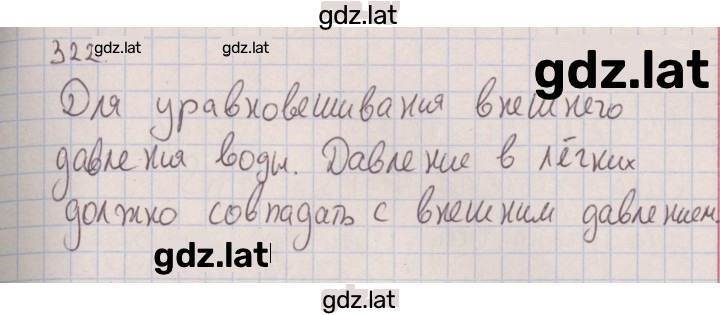 gdz.lat
322. gdz.lat gdz.lat
gdz.lat
Для уравновешивания внешнего
давления воды. Давление в лёгких
должно совпадать с внешним давлением.
gdz.lat
gdz.lat